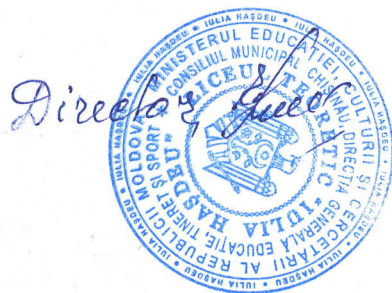 Director,
IULIA HAȘDEU • IULIA HAȘDEU • IULIA HAȘDEU • IULIA HAȘDEU • IULIA HAȘDEU • IULIA HAȘDEU • IULIA HAȘDEU • IULIA HAȘDEU
MINISTERUL EDUCAȚIEI, CULTURII ȘI CERCETĂRII AL REPUBLICII MOLDOVA
CONSILIUL MUNICIPAL CHIȘINĂU DIRECȚIA GENERALĂ EDUCAȚIE, TINERET ȘI SPORT
LICEUL TEORETIC "IULIA HAȘDEU"